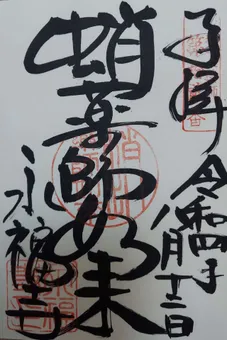 奉拝
令和四年
八月十二日
蛸薬師如来
永福寺